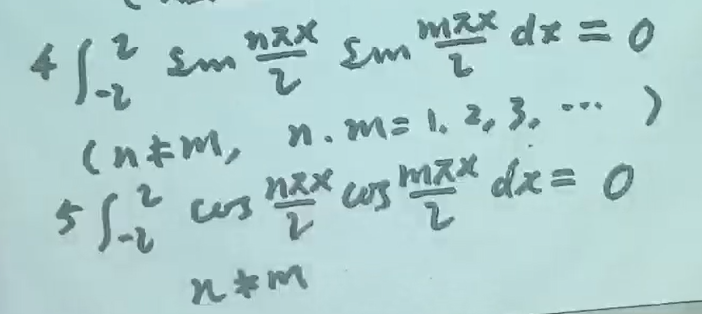 4 ∫_{-2}^{2} sin \frac{nπx}{2} sin \frac{mπx}{2} dx = 0
(n≠m, n.m=1.2,3,⋯)
5 ∫_{-2}^{2} cos \frac{nπx}{2} cos \frac{mπx}{2} dx = 0
n≠m